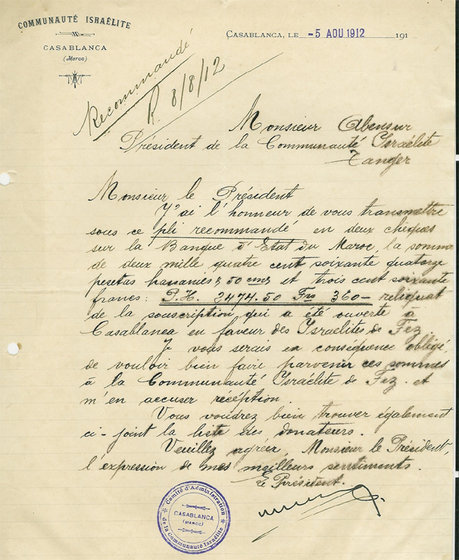 COMMUNAUTÉ ISRAÉLITE
CASABLANCA
(Maroc)
CASABLANCA, LE -5 AOU 1912 191
Recommandé
R. 8/8/12
Monsieur Abensur
Président de la Communauté Israélite
Tanger
Monsieur le Président
J'ai l'honneur de vous transmettre
sous ce pli recommandé en deux chèques
sur la Banque d'Etat du Maroc la somme
de deux mille quatre cent soixante quatorze
pesetas hassanies & 50 cms et trois cent soixante
francs: P.H. 2474.50 Frs 360- reliquat
de la souscription qui a été ouverte à
Casablanca en faveur des Israélites de Fez
Je vous serais en conséquence obligé
de vouloir bien faire parvenir ces sommes
à la Communauté Israélite de Fez et
m'en accuser réception.
Vous voudrez bien trouver également
ci-joint la liste des donateurs.
Veuillez agréer, Monsieur le Président,
l'expression de mes meilleurs sentiments.
Le Président.
Comité d'Administration
de la Communauté Israélite
CASABLANCA
(MAROC)